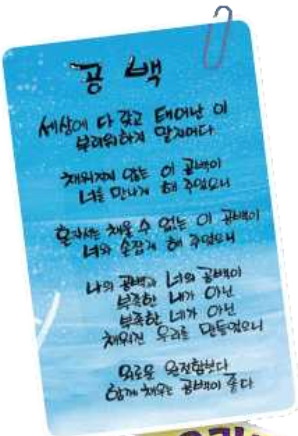 공백
세상에 다 갖고 태어난 이
부러워하지 말지어다
채워지지 않는 이 공백이
너를 만나게 해 주었으니
혼자서는 채울 수 없는 이 공백이
너와 손잡게 해 주었으니
나의 공백과 너의 공백이
부족한 내가 아닌
부족한 네가 아닌
채워진 우리를 만들었으니
외로운 완전함보다
함께 채우는 공백이 좋다